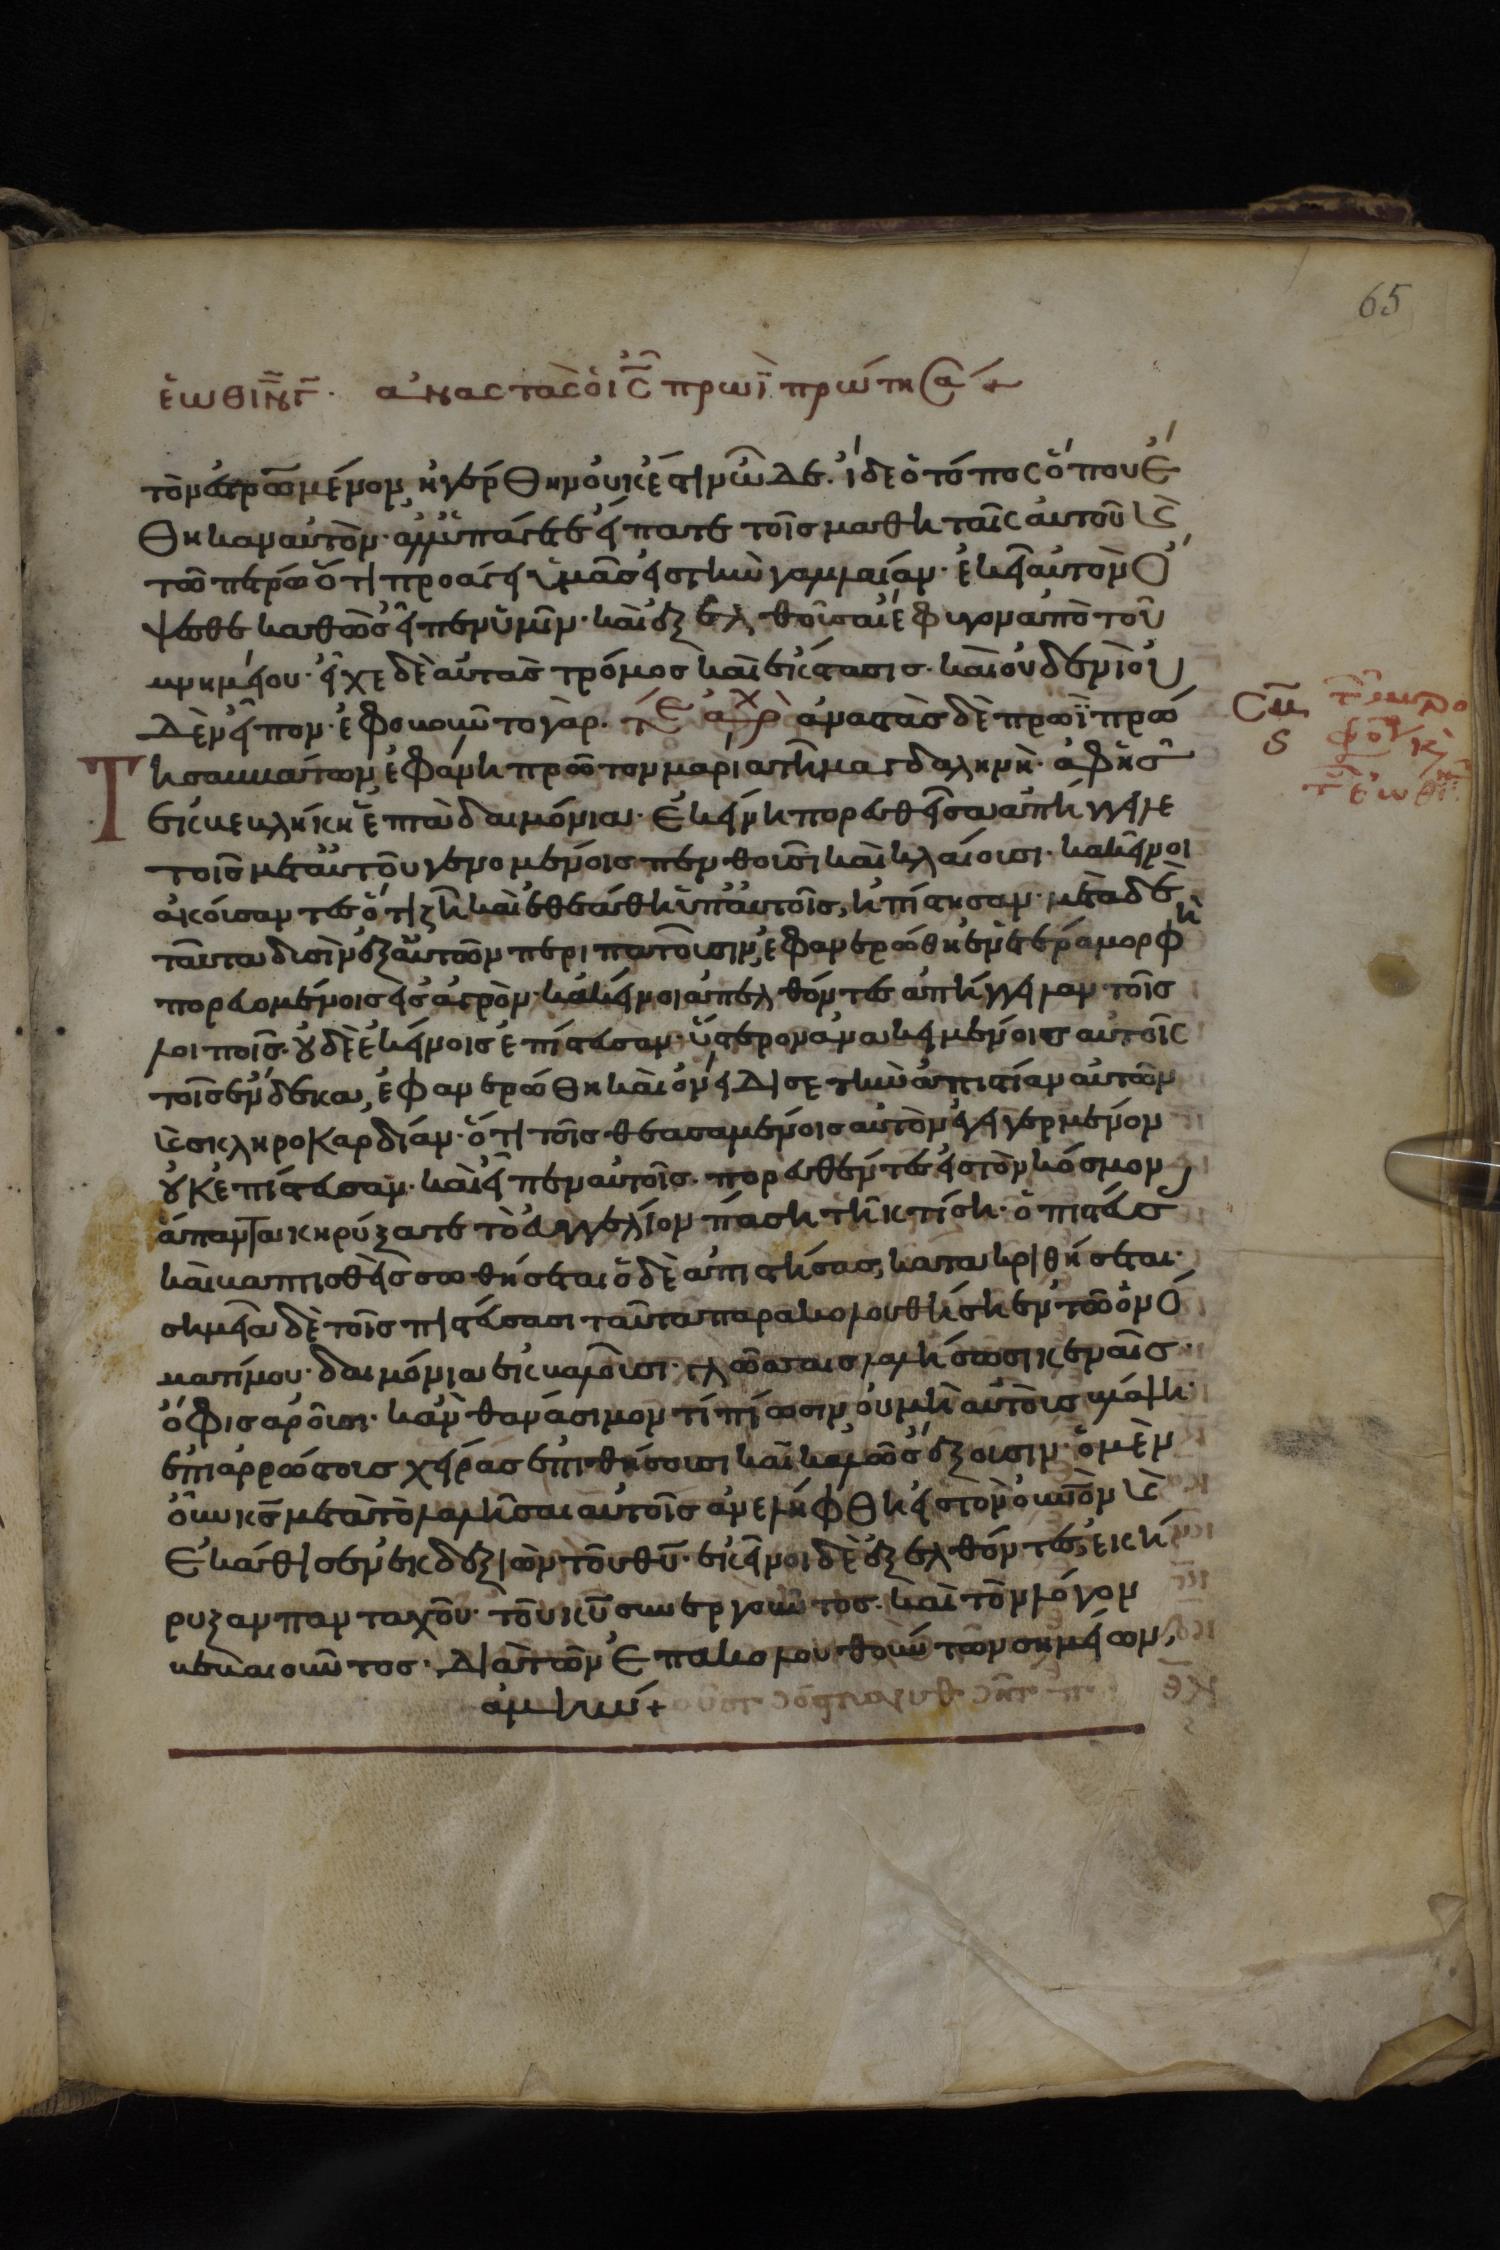 65
ἑωθινὸν γ̄. ἀναστὰς ὁ ι̅ς̅ πρωῒ πρώτη σα +
τὸν ἐστρωμένον, ἠγέρθη· οὐκ ἔστιν ὧδε. ἴδε ὁ τόπος ὅπου ἔ
θηκαν αὐτὸν· ἀλλ' ὑπάγετε εἴπατε τοῖς μαθηταῖς αὐτοῦ κὲ
τῶ πέτρω ὅτι προάγει ὑμᾶς εἰς τὴν γαλιλαίαν· ἐκεῖ αὐτὸν ὄ
ψεσθε καθὼς εἶπεν ὑμῖν· καὶ ἐξελθοῦσαι ἔφυγον ἀπὸ τοῦ
μνημείου· εἶχε δὲ αὐτὰς τρόμος καὶ ἔκστασις· καὶ οὐδενὶ οὐ
δὲν εἶπον· ἐφοβοῦντο γὰρ. ἀναστὰς δὲ πρωῒ πρώ
τη σαββάτων, ἐφάνη πρῶτον μαρία τῆ μαγδαληνῆ· ἀφ' ἧς
ἐκβεβλήκει ἑπτὰ δαιμόνια· ἐκείνη πορευθεῖσα ἀπήγγειλε
τοῖς μετ' αὐτοῦ γενομένοις πενθοῦσι καὶ κλαίουσι· κακεῖνοι
ἀκούσαντες ὅτι ζῆ καὶ ἐθεάθη ὑπ' αὐτῆς, ἠπίστησαν· μετὰ δὲ
ταῦτα δυσὶν ἐξ αὐτῶν περιπατοῦσιν, ἐφανερώθη ἐν ἑτέρα μορφῆ
πορευομένοις εἰς ἀγρὸν· κακεῖνοι ἀπελθόντες ἀπήγγειλαν τοῖς
λοιποῖς· οὐδὲ ἐκείνοις ἐπίστευσαν· ὕστερον ἀνακειμένοις αὐτοῖς
τοῖς ἕνδεκα, ἐφανερώθη καὶ ὀνείδισε τὴν ἀπιστίαν αὐτῶν
κὲ σκληροκαρδίαν· ὅτι τοῖς θεασαμένοις αὐτὸν ἐγηγερμένον
οὐκ ἐπίστευσαν· καὶ εἶπεν αὐτοῖς· πορευθέντες εἰς τὸν κόσμον
ἅπαντα κηρύξατε τὸ εὐαγγέλιον πάση τῆ κτίσει· ὁ πιστεύσας
καὶ βαπτισθεὶς σωθήσεται· ὁ δὲ ἀπιστήσας, κατακριθήσεται·
σημεῖα δὲ τοῖς πιστεύσασι ταῦτα παρακολουθήσει· ἐν τῶ ὀνό
ματί μου· δαιμόνια ἐκβαλοῦσι· γλώσσαις λαλήσωσι καιναῖς·
ὄφις ἀροῦσι· κἂν θανάσιμον τί πίωσιν, οὐ μὴ αὐτοὺς βλάψη·
ἐπὶ ἀρρώστους χεῖρας ἐπιθήσουσι καὶ καλῶς ἕξουσιν· ὁ μὲν
οὖν κ̅ς̅ μετὰ τὸ λαλῆσαι αὐτοῖς ἀνελήφθη εἰς τὸν οὐ̅νὸν κὲ
ἐκάθισεν ἐκ δεξιῶν τοῦ θ̅υ̅· ἐκεῖνοι δὲ ἐξελθόντες, ἐκή
ρυξαν πανταχοῦ· τοῦ κ̅υ̅ συνεργοῦντος· καὶ τὸν λόγον
βεβαιοῦντος· διὰ τῶν ἐπακολουθούντων σημείων,
ἀμήν +